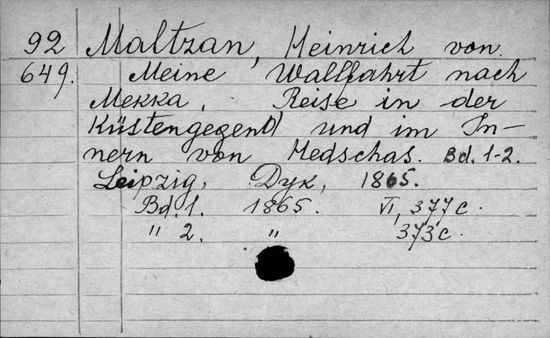 92 Maltzan, Heinrich von.
649. Meine Wallfahrt nach
Mekka. Reise in der
Küstengegend und im In-
nern von Hedschas. Bd. 1-2.
Leipzig, Dyk, 1865.
Bd. 1. 1865. VI, 377 c.
" 2. " 373 c.